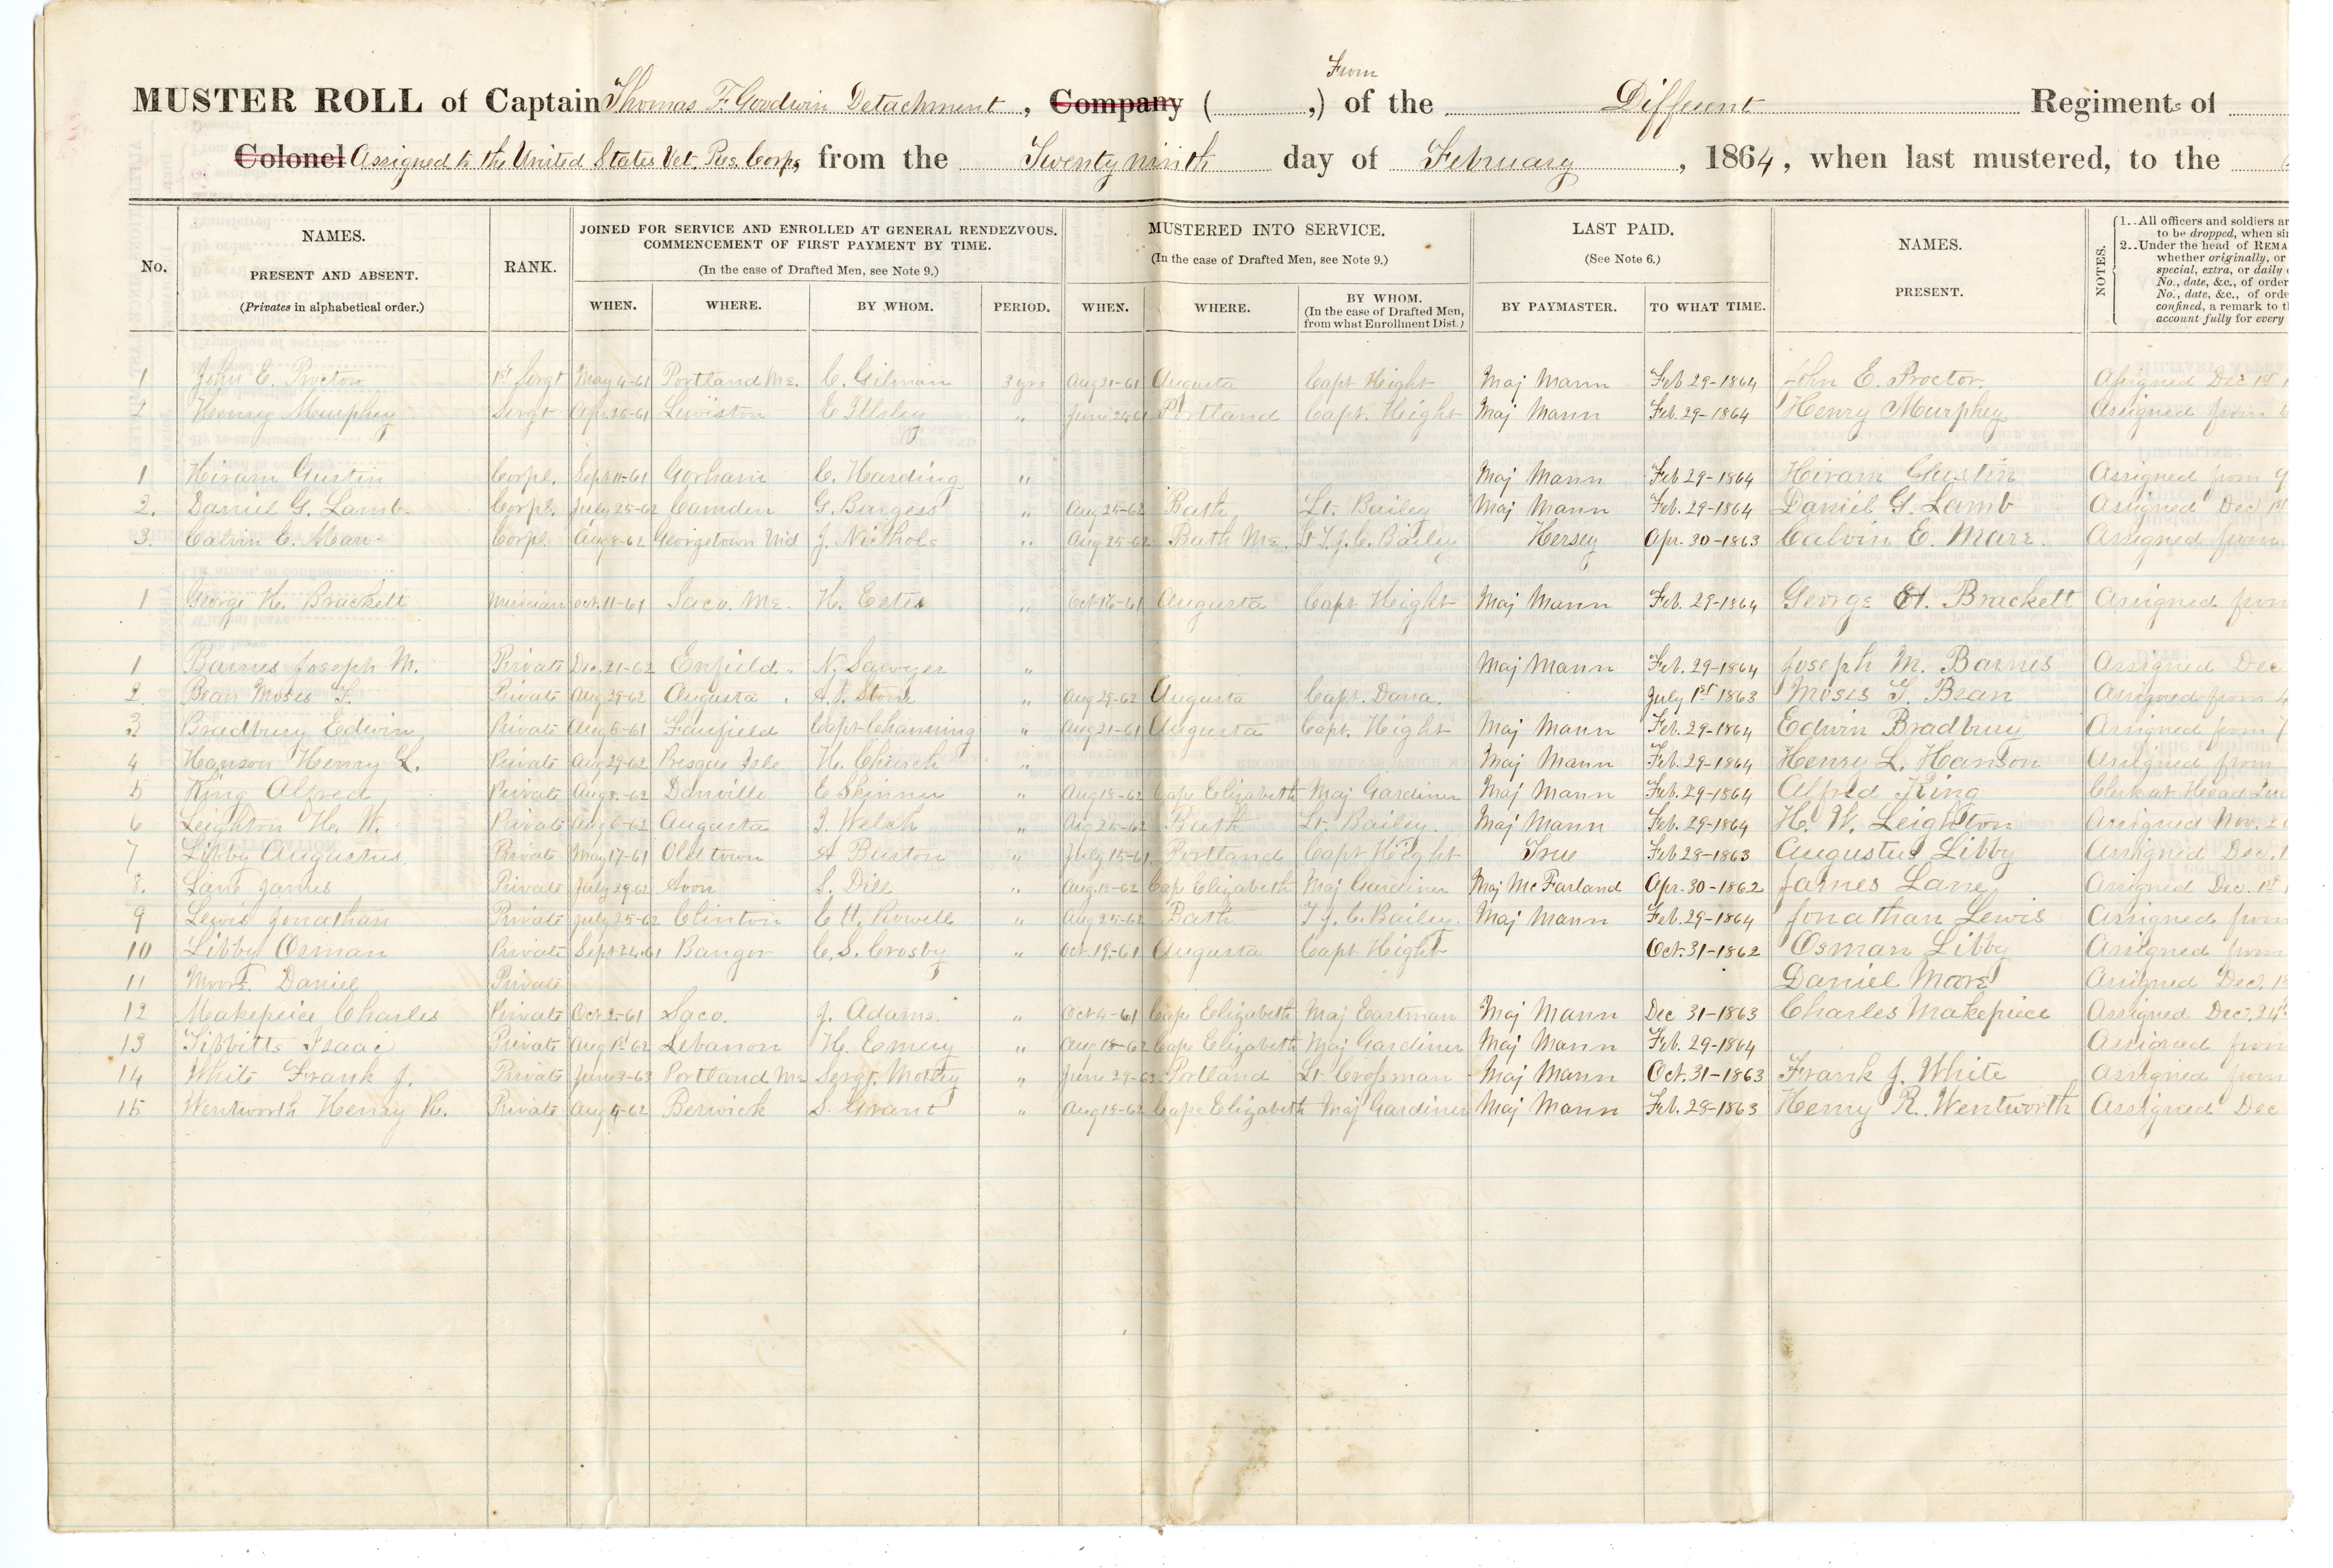 From
MUSTER ROLL of Captain Thomas F. Goodwin Detachment, Company ( ,) of the Different Regiments of
Colonel Assigned to the United States Vet. Res. Corps, from the Twenty ninth day of February, 1864, when last mustered, to the
No. NAMES. PRESENT AND ABSENT. (Privates in alphabetical order.) RANK. JOINED FOR SERVICE AND ENROLLED AT GENERAL RENDEZVOUS. COMMENCEMENT OF FIRST PAYMENT BY TIME. (In the case of Drafted Men, see Note 9.) WHEN. WHERE. BY WHOM. PERIOD. MUSTERED INTO SERVICE. (In the case of Drafted Men, see Note 9.) WHEN. WHERE. BY WHOM. (In the case of Drafted Men, from what Enrollment Dist.) LAST PAID. (See Note 6.) BY PAYMASTER. TO WHAT TIME. NAMES. PRESENT. NOTES.
1..All officers and soldiers ar
to be dropped, when si
2..Under the head of REMA
whether originally, or
special, extra, or daily
No., date, &c., of order
No., date, &c., of orde
confined, a remark to t
account fully for every
1 John E. Procton 1st Sergt May 4-61 Portland Me. C. Gilman 3 yrs Aug 21-61 Augusta Capt Hight Maj Mann Feb 29-1864 John E. Proctor. Assigned Dec 1st
2 Henry Murphey Sergt Apr. 26-61 Lewiston E Illsley " June 24-61 Portland Capt. Hight Maj Mann Feb. 29-1864 Henry Murphey Assigned from
1 Hiram Gustin Corpl. Sept 11-61 Gorham C. Harding " Maj Mann Feb 29-1864 Hiram Gustin Assigned from
2. Daniel G. Lamb. Corpl. July 25-62 Camden G. Burgess " Aug 25-62 Bath Lt. Bailey Maj Mann Feb. 29-1864 Daniel G. Lamb Assigned Dec 1st
3. Calvin E. Marr Corpl Aug 8-62 Georgetown J. Nichols " Aug 25-62 Bath Me. Lt T. J. C. Bailey Hersey Apr. 30-1863 Calvin E. Marr. Assigned from
1 George H. Brackett Musician Oct. 11-61 Saco. Me. H. Eetes " Oct 16-61 Augusta Capt Hight Maj Mann Feb. 29-1864 George H. Brackett Assigned from
1 Barnes Joseph M. Private Dec. 21-62 Enfield N. Sawyer " Maj Mann Feb. 29-1864 Joseph M. Barnes Assigned Dec
2. Bean Moses T. Private Aug 29-62 Augusta Stone " Aug 29-62 Augusta Capt. Dana. July 1st 1863 Moses T. Bean Assigned from
3 Bradbury Edwin Private Aug 5-61 Fairfield Capt Channing " Aug 21-61 Augusta Capt. Hight Maj Mann Feb. 29-1864 Edwin Bradbury Assigned from
4 Hanson Henry L. Private Aug 29-62 Presque Isle H. Church " Maj Mann Feb. 29-1864 Henry L. Hanson Assigned from
5 King Alfred Private Aug 8-62 Danville E Skinner " Aug 18-62 Cape Elizabeth Maj Gardiner Maj Mann Feb. 29-1864 Alfred King Clerk at Head
6 Leighton H. W. Private Aug 6-62 Augusta J. Welch " Aug 25-62 Bath Lt. Bailey. Maj Mann Feb. 29-1864 H. W. Leighton Assigned Nov.
7 Libby Augustus. Private May 17-61 Oldtown A Burton " July 15-61 Portland Capt Hight True Feb 28-1863 Augustus Libby Assigned Dec. 1
8. Lane James Private July 29-62 Avon S. Dill " Aug. 18-62 Cap Elizabeth Maj Gardiner Maj McFarland Apr. 30-1862 James Lane Assigned Dec. 1st
9 Lewis Jonathan Private July 25-62 Clinton C H. Rowell " Aug 25-62 Bath T. J. C. Bailey. Maj Mann Feb. 29-1864 Jonathan Lewis Assigned from
10 Libby Osman Private Sept 24-61 Bangor C. S. Crosby " Oct. 19-61 Augusta Capt Hight Oct. 31-1862 Osman Libby Assigned from
11 Moore Daniel Private Daniel Moore Assigned Dec. 1s
12 Makepeice Charles Private Oct 2-61 Saco. J. Adams. " Oct 4-61 Cape Elizabeth Maj Eastman Maj Mann Dec 31-1863 Charles Makepiece Assigned Dec. 24th
13 Tibbitts Isaac Private Aug 1st 62 Lebanon H. Emery " Aug 18-62 Cape Elizabeth Maj Gardiner Maj Mann Feb. 29-1864 Assigned from
14 White Frank J. Private June 3-63 Portland Me Sergt. Motley " June 29-63 Portland Lt Crossman Maj Mann Oct. 31-1863 Frank J. White Assigned from
15 Wentworth Henry R. Private Aug 5-62 Berwick S. Grant " Aug 18-62 Cape Elizabeth Maj Gardiner Maj Mann Feb. 28-1863 Henry R. Wentworth Assigned Dec